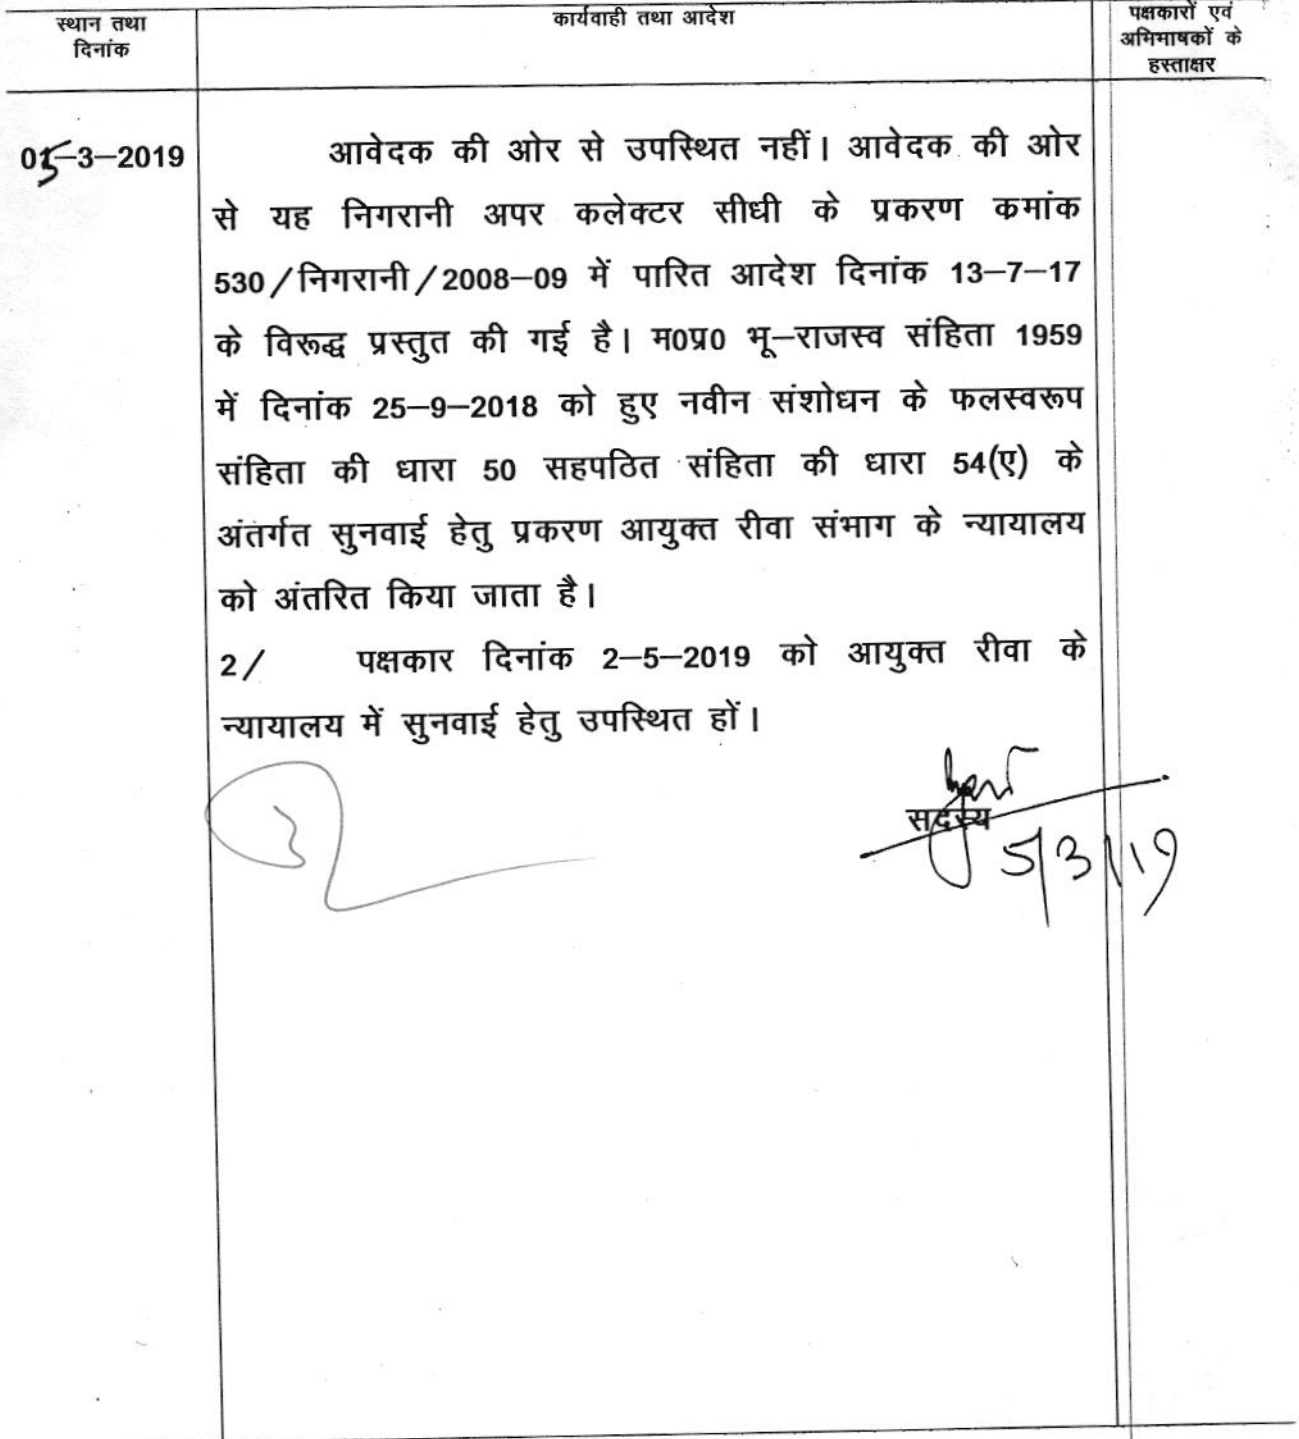 स्थान तथा
दिनांक
कार्यवाही तथा आदेश
पक्षकारों एवं
अभिभाषकों के
हस्ताक्षर
05-3-2019
आवेदक की ओर से उपस्थित नहीं। आवेदक की ओर
से यह निगरानी अपर कलेक्टर सीधी के प्रकरण कमांक
530/निगरानी/2008-09 में पारित आदेश दिनांक 13-7-17
के विरूद्ध प्रस्तुत की गई है। म0प्र0 भू-राजस्व संहिता 1959
में दिनांक 25-9-2018 को हुए नवीन संशोधन के फलस्वरूप
संहिता की धारा 50 सहपठित संहिता की धारा 54(ए) के
अंतर्गत सुनवाई हेतु प्रकरण आयुक्त रीवा संभाग के न्यायालय
को अंतरित किया जाता है।
2/ पक्षकार दिनांक 2-5-2019 को आयुक्त रीवा के
न्यायालय में सुनवाई हेतु उपस्थित हों।
सदस्य
5/3/19